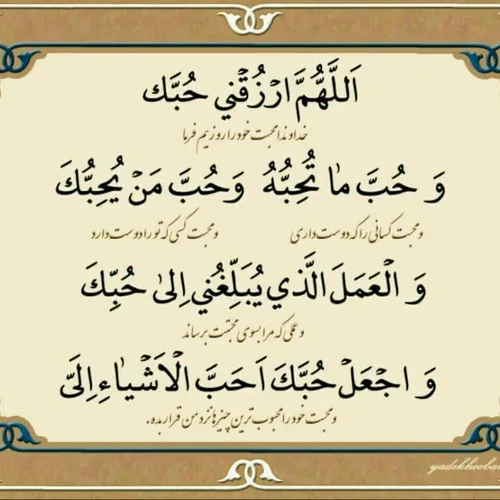 اَللَّهُمَّ ارْزُقْني حُبَّكَ
خداوندا محبت خود را روزیم فرما
وَ حُبَّ مٰا تُحِبُّهُ وَحُبَّ مَنْ يُحِبُّكَ
و محبت کسانی را که دوست داری و محبت کسی که تو را دوست دارد
وَ الْعَمَلَ الَّذي يُبَلِّغُني اِلىٰ حُبِّكَ
و عملی که مرا بسوی محبتت برساند
وَ اجْعَلْ حُبَّكَ اَحَبَّ الْاَشْيٰاءِ اِلَىَّ
و محبت خود را محبوب ترین چیزها نزد من قرار بده.